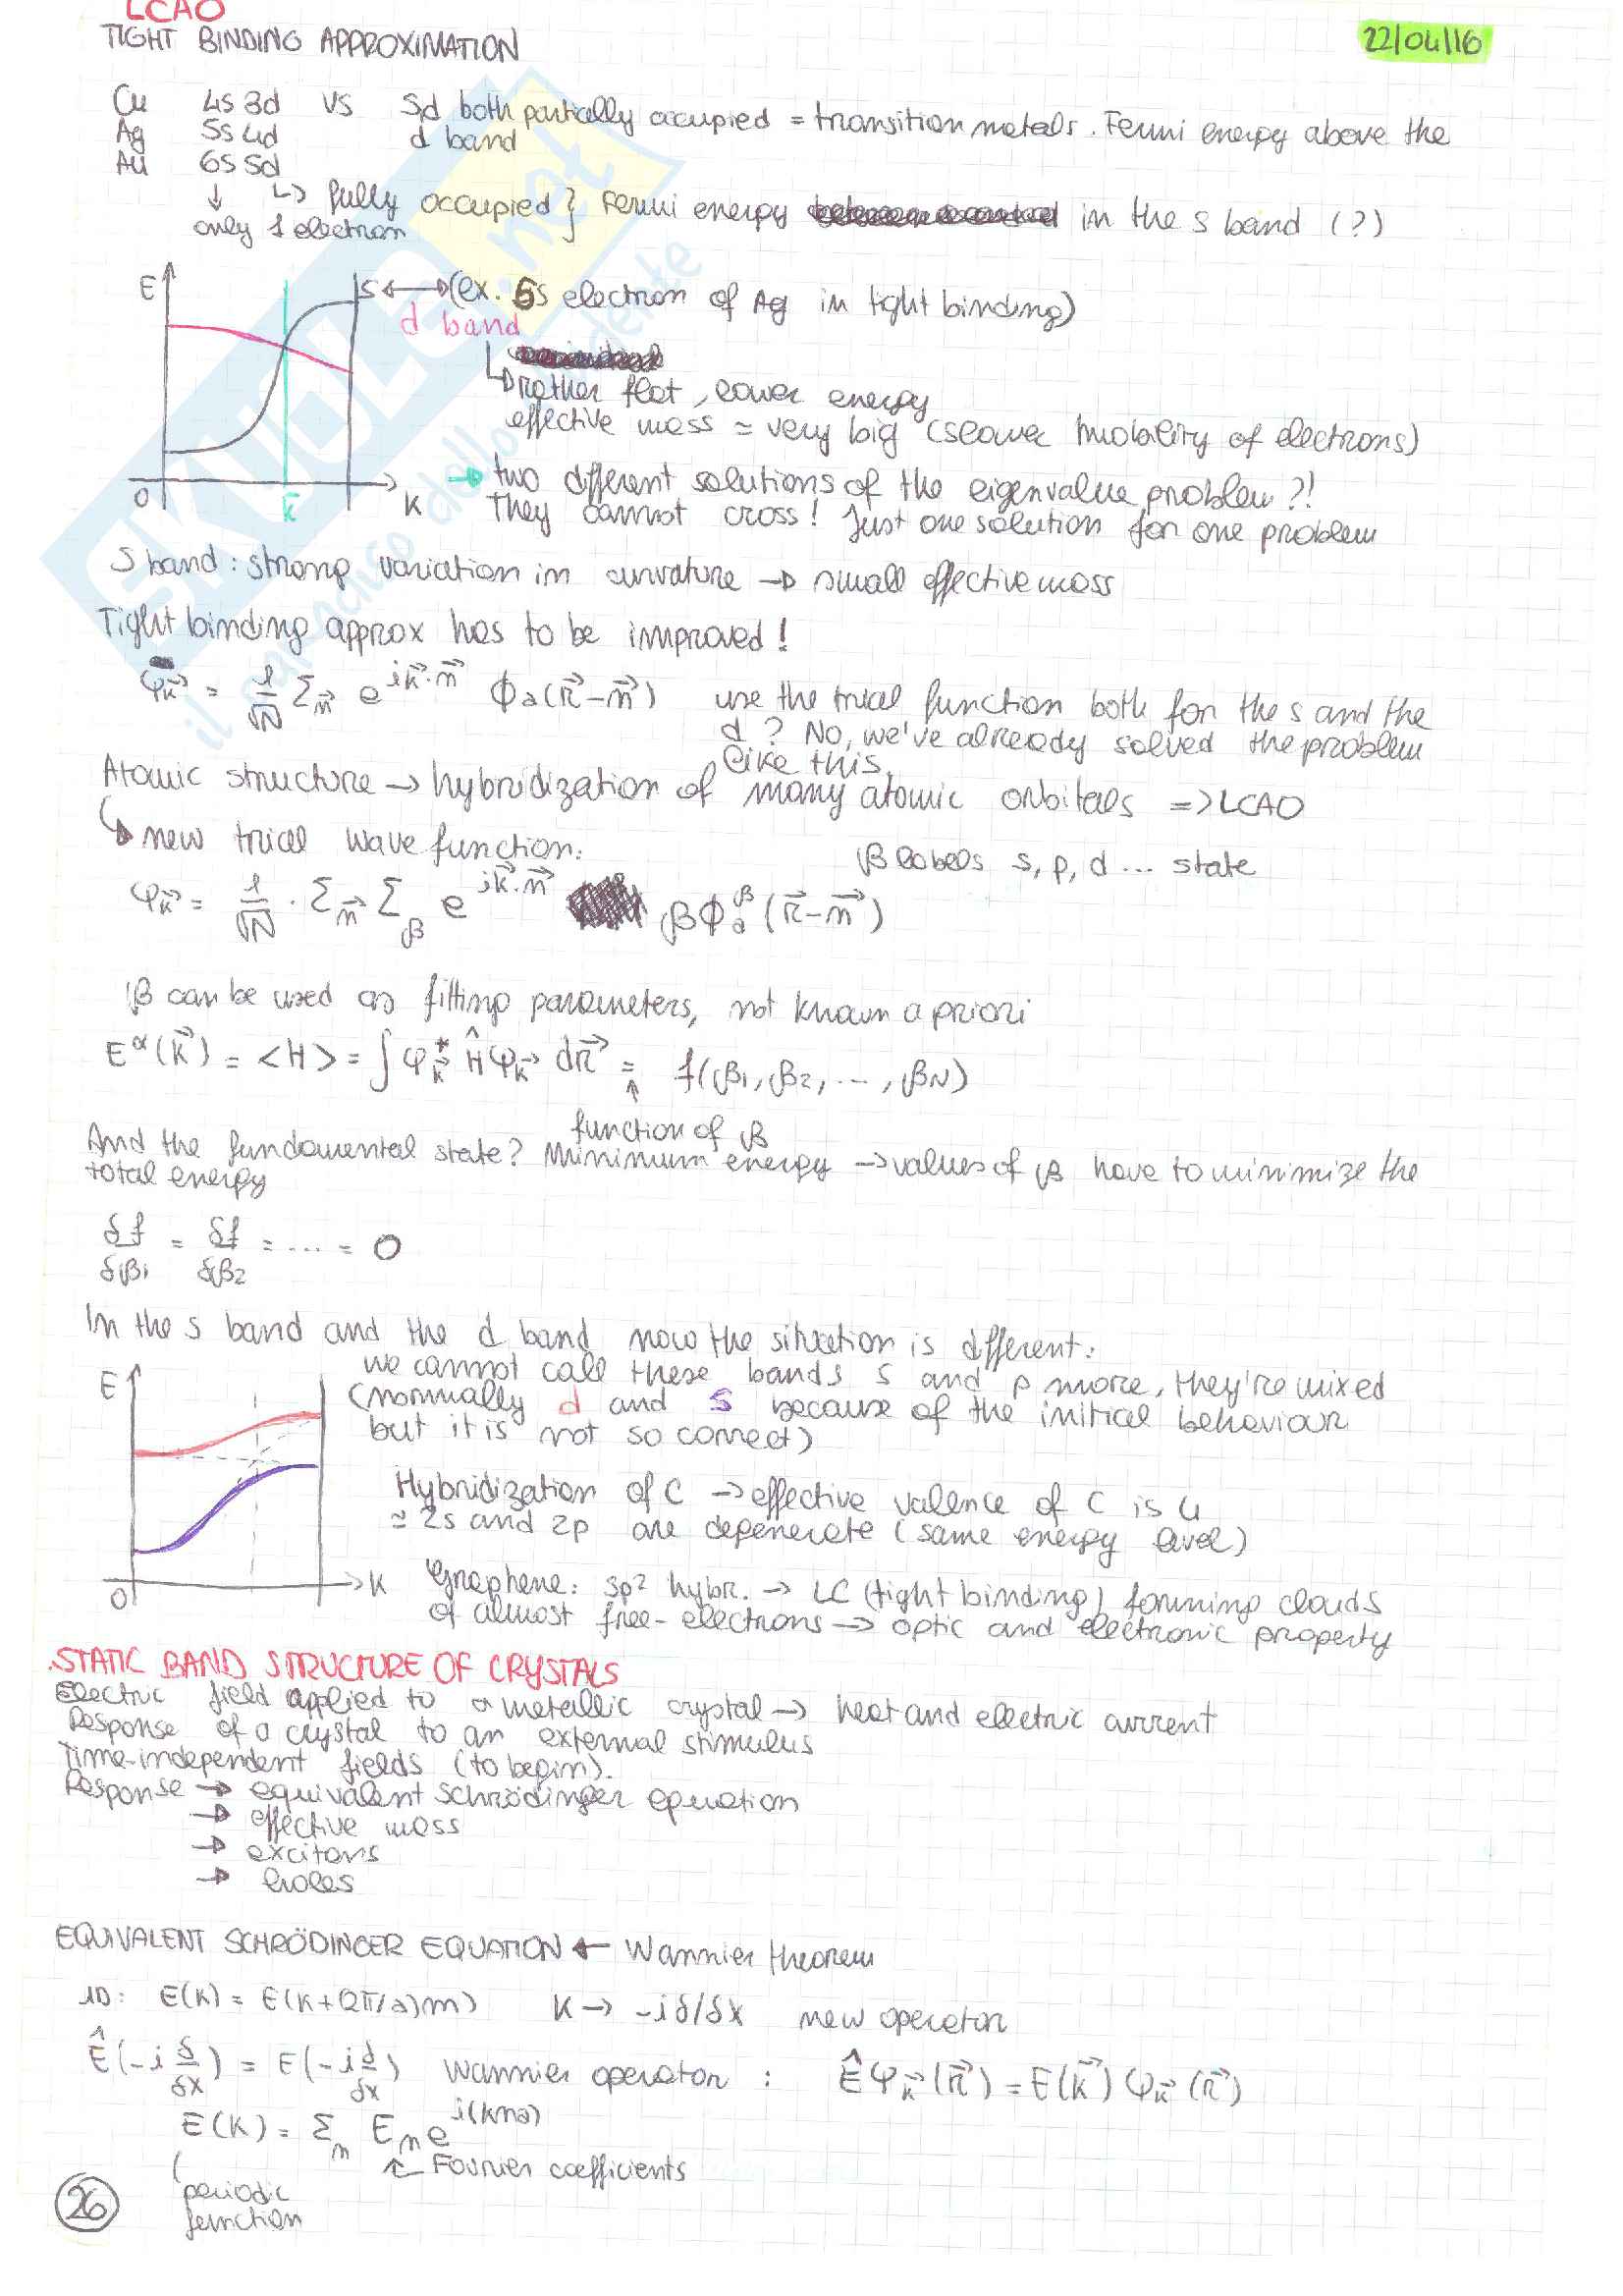 LCAO
TIGHT BINDING APPROXIMATION
22/04/16
Cu 4s 3d vs s,d both partially occupied = transition metals. Fermi energy above the
Ag 5s 4d d band
Au 6s 5d
↓ ↳ fully occupied } Fermi energy in the s band (?)
only 1 electron
E
s ↔ (ex. 5s electron of Ag in tight binding)
d band
↳ rather flat, lower energy
effective mass = very big (slower mobility of electrons)
→ two different solutions of the eigenvalue problem?!
0 k̄ K They cannot cross! Just one solution for one problem
S band: strong variation in curvature → small effective mass
Tight binding approx has to be improved!
φ_k⃗ = 1/√N Σ_n⃗ e^{ik⃗·n⃗} ϕ_a(r⃗-n⃗) use the trial function both for the s and the
d? No, we've already solved the problem
like this.
Atomic structure → hybridization of many atomic orbitals => LCAO
↳ new trial wave function:
β labels s, p, d ... state
φ_k⃗ = 1/√N · Σ_n⃗ Σ_β e^{ik⃗·n⃗} βϕ_a^β(r⃗-n⃗)
β can be used as fitting parameters, not known a priori
E^α(k⃗) = <H> = ∫ φ*_k⃗ Ĥ φ_k⃗ dr⃗ = f(β1, β2, ..., βN)
↑
function of β
And the fundamental state? Minimum energy → values of β have to minimize the
total energy
δf/δβ1 = δf/δβ2 = .... = 0
In the s band and the d band now the situation is different:
E we cannot call these bands s and p more, they're mixed
(normally d and s because of the initial behaviour
but it is not so correct)
Hybridization of C → effective valence of C is 4
= 2s and 2p are degenerate (same energy level)
0 K Graphene: sp² hybr. → LC (tight binding) forming clouds
of almost free-electrons → optic and electronic property
STATIC BAND STRUCTURE OF CRYSTALS
Electric field applied to a metallic crystal → heat and electric current
Response of a crystal to an external stimulus
Time-independent fields (to begin).
Response → equivalent Schrödinger equation
→ effective mass
→ excitons
→ holes
EQUIVALENT SCHRÖDINGER EQUATION ← Wannier theorem
1D: E(k) = E(k+(2π/a)m) k → -iδ/δx new operator
Ê(-i δ/δx) = E(-i δ/δx) Wannier operator : Êφ_k⃗(r⃗) = E(k⃗) φ_k⃗(r⃗)
E(k) = Σ_n E_n e^{i(kna)}
↑ Fourier coefficients
periodic
function
26
SKUOLA.net
il paradiso dello studente